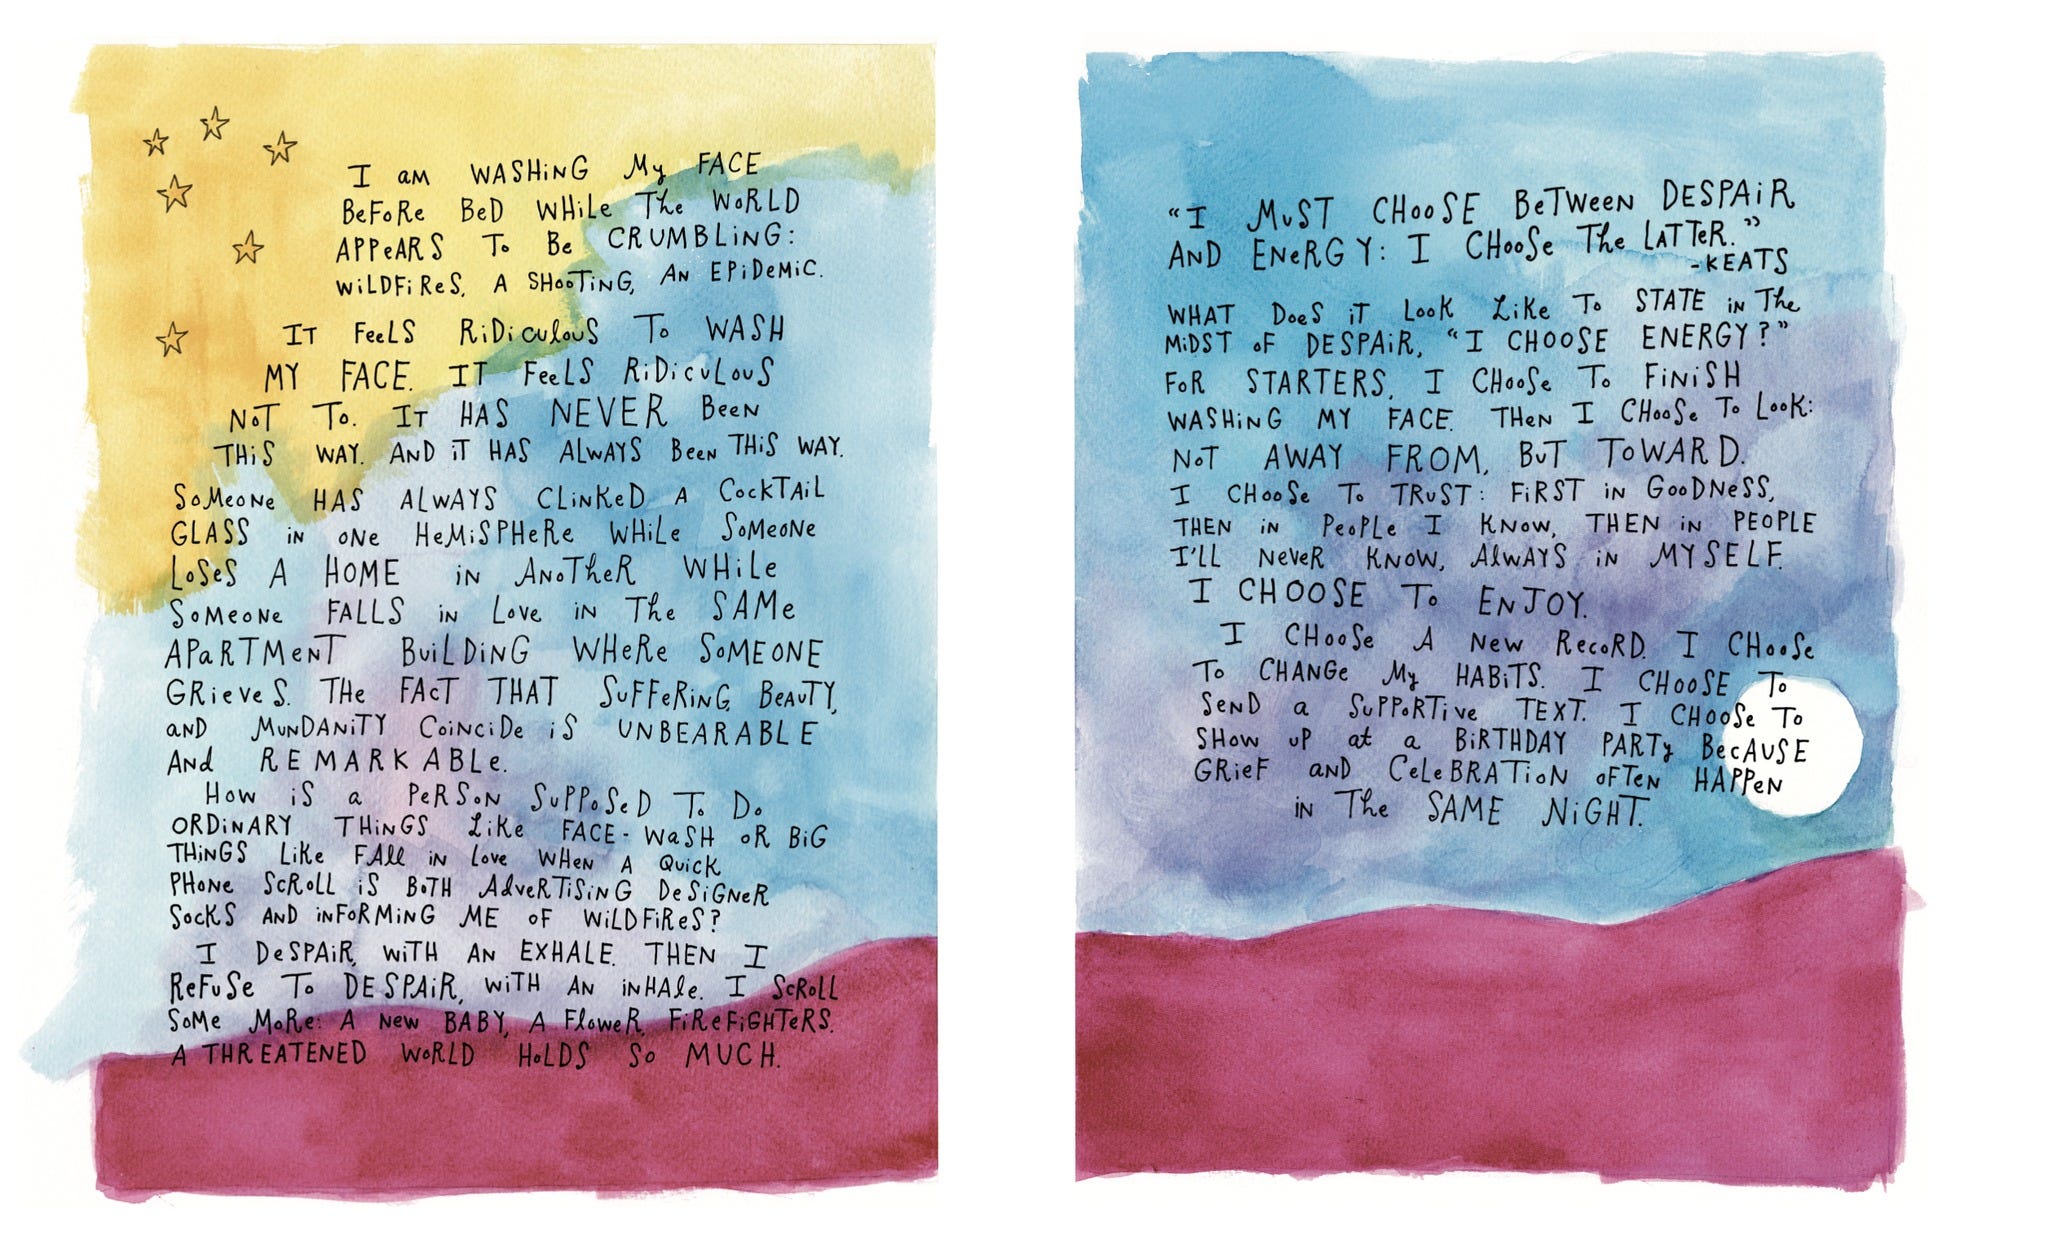 I AM WASHING MY FACE
BEFORE BED WHILE THE WORLD
APPEARS TO BE CRUMBLING:
WILDFIRES, A SHOOTING, AN EPIDEMIC.
IT FEELS RIDICULOUS TO WASH
MY FACE. IT FEELS RIDICULOUS
NOT TO. IT HAS NEVER BEEN
THIS WAY. AND IT HAS ALWAYS BEEN THIS WAY.
SOMEONE HAS ALWAYS CLINKED A COCKTAIL
GLASS IN ONE HEMISPHERE WHILE SOMEONE
LOSES A HOME IN ANOTHER WHILE
SOMEONE FALLS IN LOVE IN THE SAME
APARTMENT BUILDING WHERE SOMEONE
GRIEVES. THE FACT THAT SUFFERING, BEAUTY,
AND MUNDANITY COINCIDE IS UNBEARABLE
AND REMARKABLE.
HOW IS A PERSON SUPPOSED TO DO
ORDINARY THINGS LIKE FACE-WASH OR BIG
THINGS LIKE FALL IN LOVE WHEN A QUICK
PHONE SCROLL IS BOTH ADVERTISING DESIGNER
SOCKS AND INFORMING ME OF WILDFIRES?
I DESPAIR, WITH AN EXHALE. THEN I
REFUSE TO DESPAIR, WITH AN INHALE. I SCROLL
SOME MORE: A NEW BABY, A FLOWER, FIREFIGHTERS.
A THREATENED WORLD HOLDS SO MUCH.
"I MUST CHOOSE BETWEEN DESPAIR
AND ENERGY: I CHOOSE THE LATTER."
-KEATS
WHAT DOES IT LOOK LIKE TO STATE IN THE
MIDST OF DESPAIR, "I CHOOSE ENERGY?"
FOR STARTERS, I CHOOSE TO FINISH
WASHING MY FACE. THEN I CHOOSE TO LOOK:
NOT AWAY FROM, BUT TOWARD.
I CHOOSE TO TRUST: FIRST IN GOODNESS,
THEN IN PEOPLE I KNOW, THEN IN PEOPLE
I'LL NEVER KNOW, ALWAYS IN MYSELF.
I CHOOSE TO ENJOY.
I CHOOSE A NEW RECORD. I CHOOSE
TO CHANGE MY HABITS. I CHOOSE TO
SEND A SUPPORTIVE TEXT. I CHOOSE TO
SHOW UP AT A BIRTHDAY PARTY BECAUSE
GRIEF AND CELEBRATION OFTEN HAPPEN
IN THE SAME NIGHT.